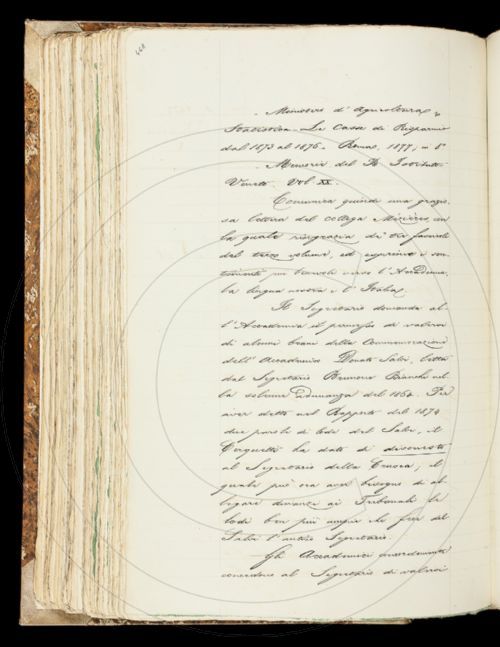 468
- Ministero d'Agricoltura,
Statistica - Le Casse di Risparmio
dal 1873 al 1876 - Roma, 1877, in 8°
- Memorie del R. Istituto
Veneto. Vol. XX.
Comunica quindi una grazio-
sa lettera del collega con
la quale ringrazia di
del terzo volume, ed esprime i sen-
timenti più verso l'Accademia,
la lingua nostra e l'Italia.
Il Segretario domanda al-
l'Accademia il permesso di valersi
di alcuni brani della Commemorazione
dell'Accademico Donato Salvi, letta
dal Segretario Brunone Bianchi nel-
la solenne Adunanza del 1864. Per
aver detto nel Rapporto del 1874
due parole di lode del Salvi, il
Cerquetti ha dato di disonesto
al Segretario della Crusca, il
quale può ora aver bisogno di al-
legare dinanzi ai Tribunali le
lodi ben più ampie che fece del
Salvi l'antico Segretario.
Gli Accademici
concedono al Segretario di valersi